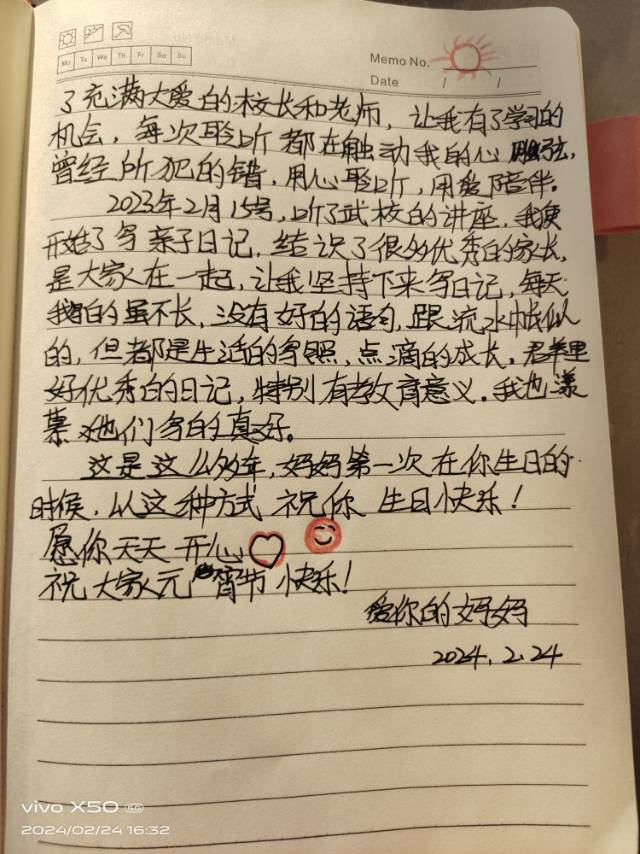 Memo No.
Mo Tu We Th Fr Sa Su
Date / /
了充满大爱的校长和老师，让我有了学习的
机会，每次聆听都在触动我的心
曾经所犯的错，用心聆听，用爱陪伴。
2023年2月15号，听了武校的讲座，我便
开始了写亲子日记，结识了很多优秀的家长，
是大家在一起，让我坚持下来写日记，每天
我写的虽不长，没有好的语句，跟流水帐似
的，但都是生活的写照，点滴的成长。君羊里
好优秀的日记，特别有教育意义。我也羡
慕她们写的真好。
这是这么多年，妈妈第一次在你生日的
时候，以这种方式祝你生日快乐！
愿你天天开心
祝大家元宵节快乐！
爱你的妈妈
2024.2.24
vivo X50
2024/02/24 16:32